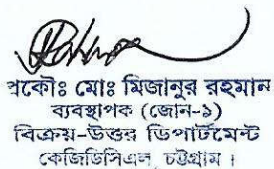 প্রকৌঃ মোঃ মিজানুর রহমান
ব্যবস্থাপক (জোন-১)
বিক্রয়-উত্তর ডিপার্টমেন্ট
কেজিডিসিএল, চট্টগ্রাম।